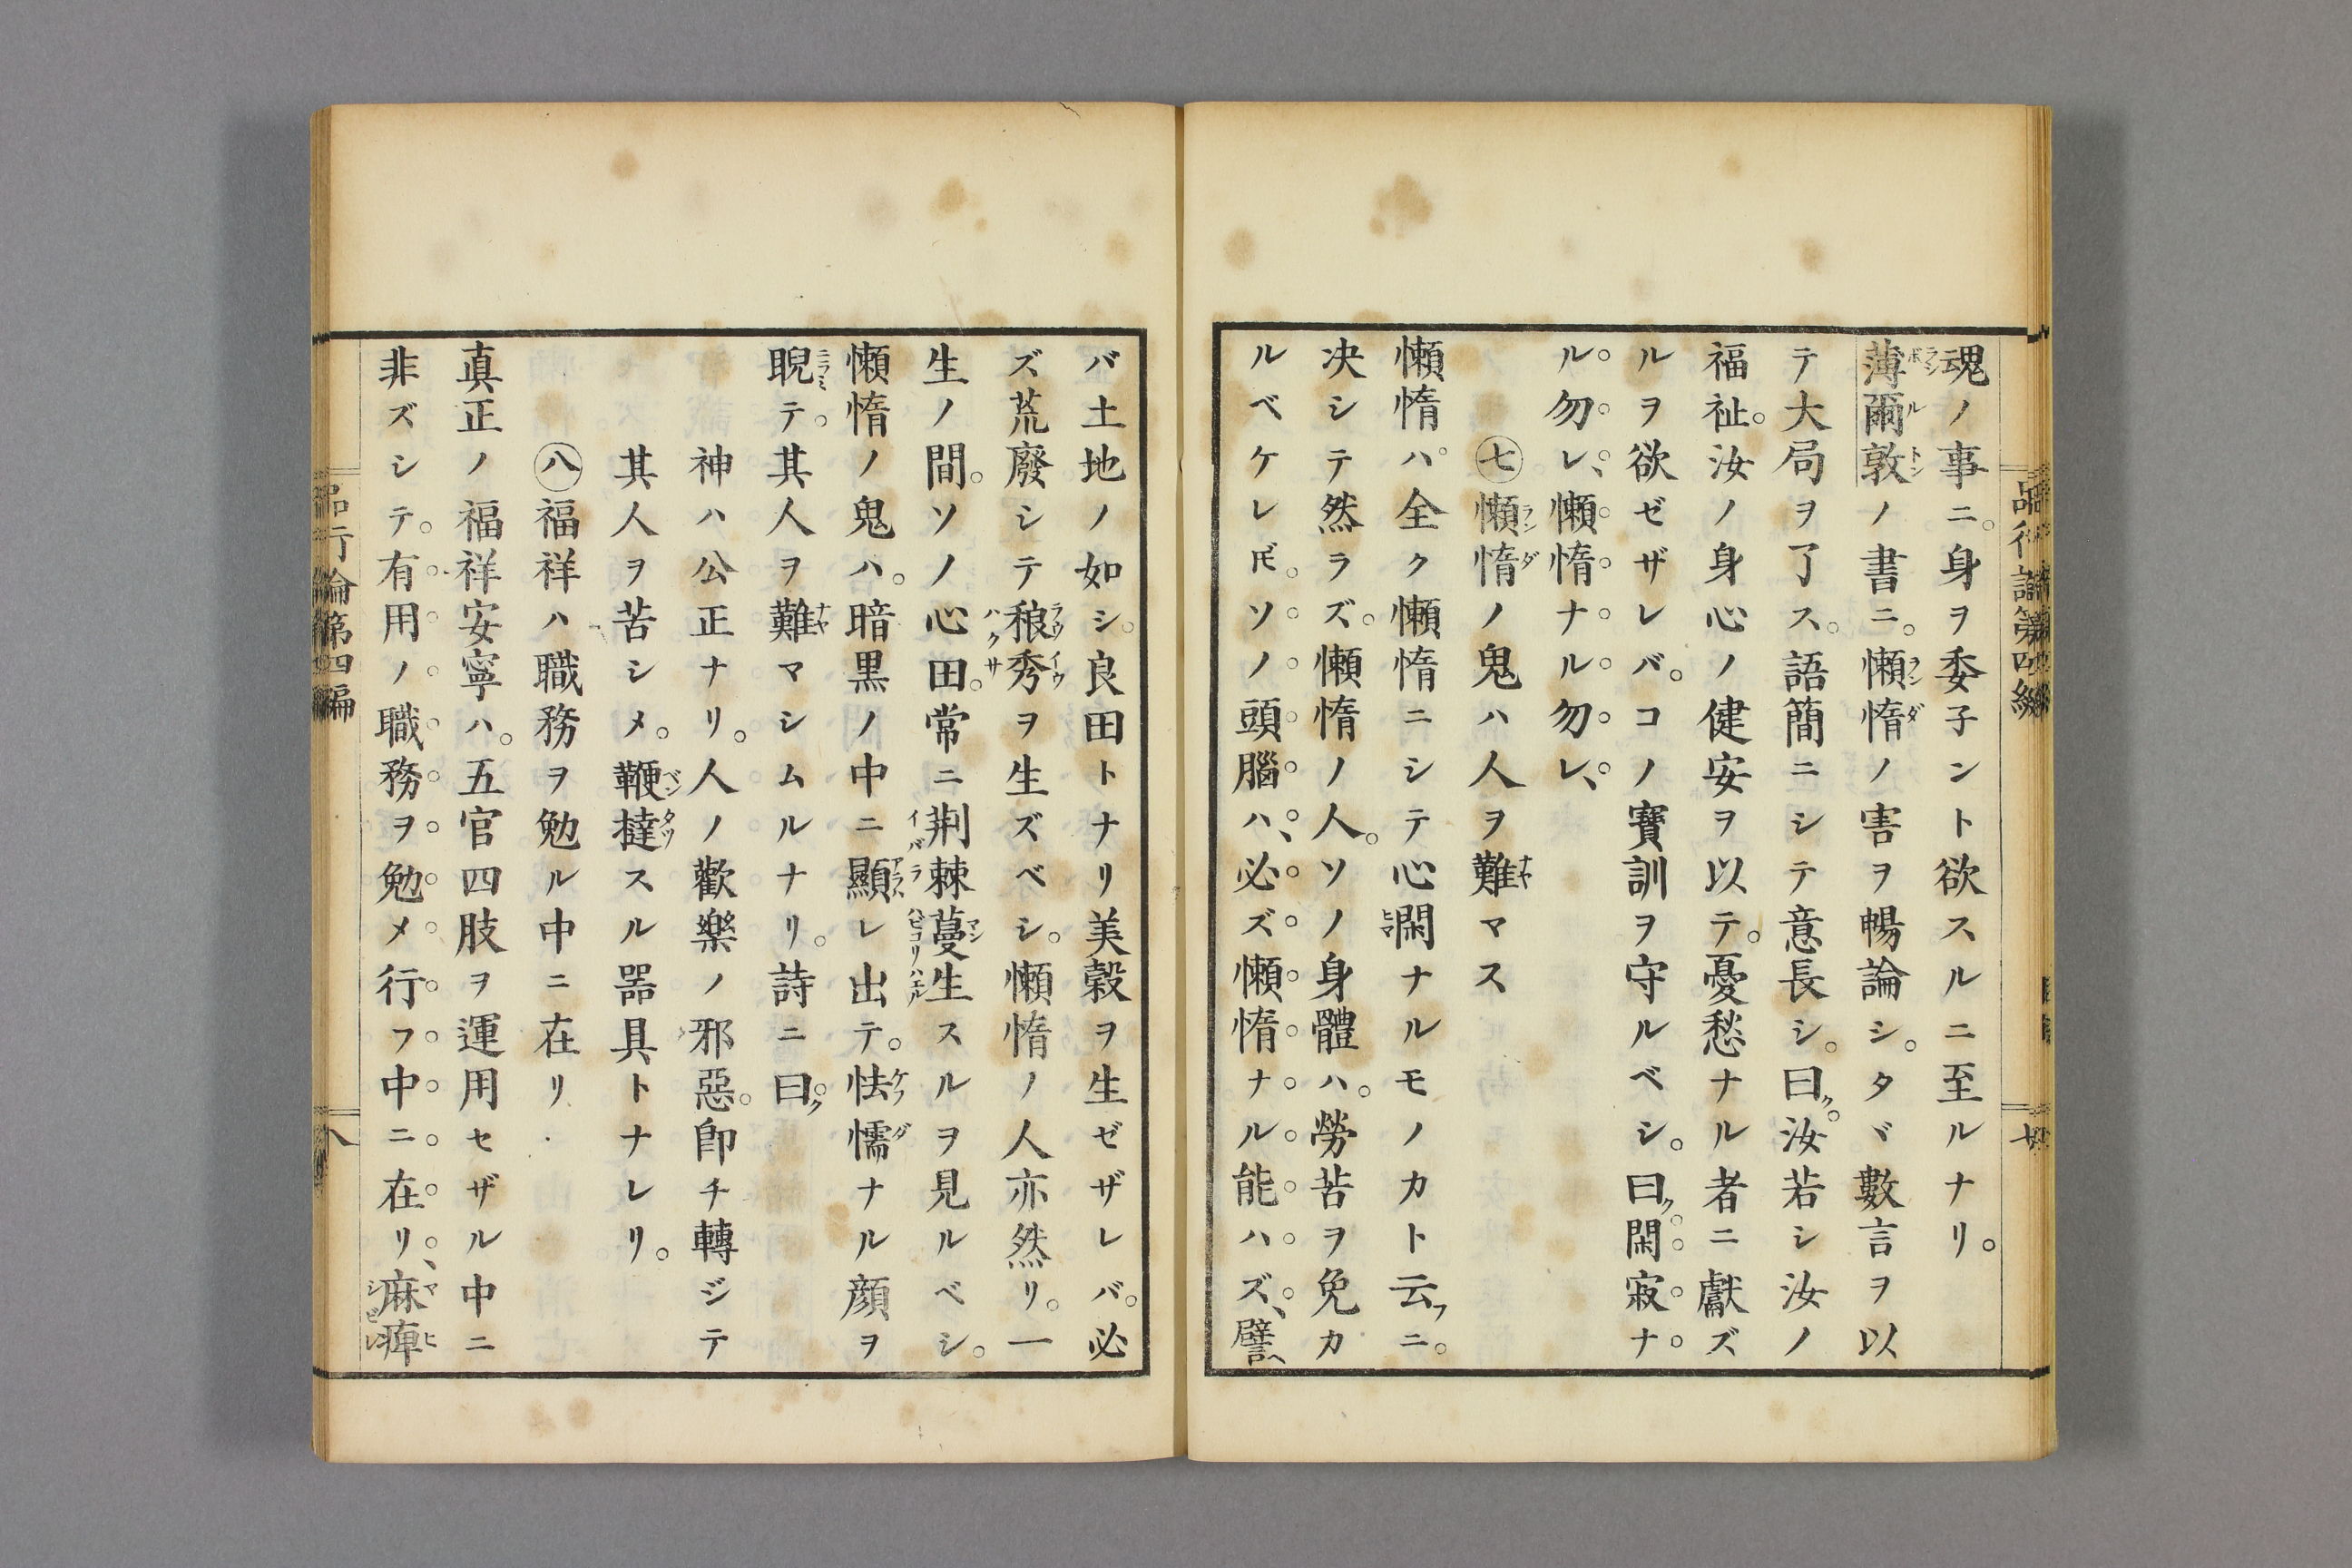 魂ノ事ニ。身ヲ委子ント欲スルニ至ルナリ。
薄爾敦ノ書ニ。懶惰ノ害ヲ暢論シ。タヾ數言ヲ以
テ大局ヲ了ス。語簡ニシテ意長シ。曰ク。汝若シ汝ノ
福祉。汝ノ身心ノ健安ヲ以テ。憂愁ナル者ニ獻ズ
ルヲ欲ゼザレバ。コノ寶訓ヲ守ルベシ。曰ク。閑寂ナ
ル勿レ、懶惰ナル勿レ、
㊆懶惰ノ鬼ハ人ヲ難マス
懶惰ハ。全ク懶惰ニシテ心閑ナルモノカト云フニ。
决シテ然ラズ。懶惰ノ人。ソノ身體ハ。勞苦ヲ免カ
ルベケレ𪜈ソノ頭腦ハ、必ズ懶惰ナル能ハズ、譬ヘ
品行論第四編
七
バ土地ノ如シ。良田トナリ美穀ヲ生ゼザレバ。必
ズ荒廢シテ稂秀ヲ生ズベシ。懶惰ノ人亦然リ。一
生ノ間。ソノ心田。常ニ荆棘蔓生スルヲ見ルベシ。
懶惰ノ鬼ハ。暗黒ノ中ニ顯レ出テ。怯懦ナル顔ヲ
睨テ。其人ヲ難マシムルナリ。詩ニ曰ク。
神ハ公正ナリ。人ノ歡樂ノ邪惡。卽チ轉ジテ
其人ヲ苦シメ。鞭撻スル噐具トナレリ。
㊇福祥ハ職務ヲ勉ル中ニ在リ
真正ノ福祥安寧ハ。五官四肢ヲ運用セザル中ニ
非ズシテ。有用ノ職務ヲ勉メ行フ中ニ在リ、麻痺
品行論第四編
八